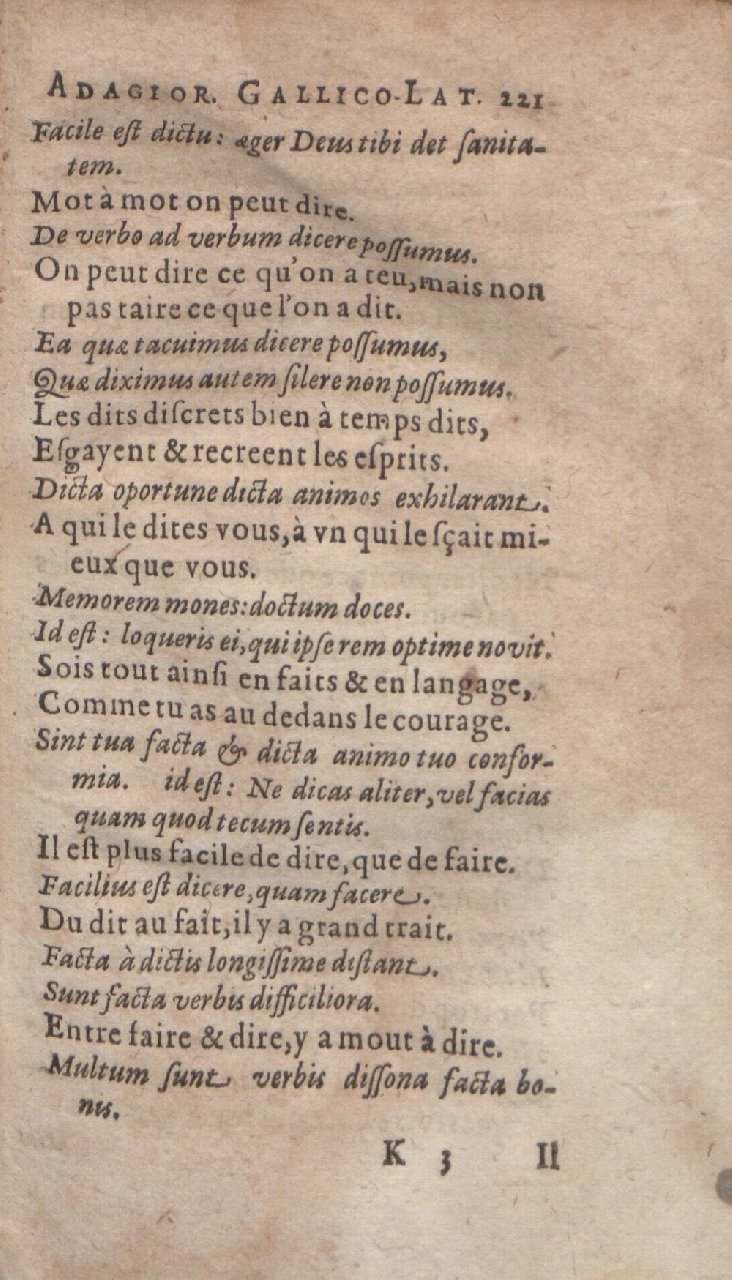 ADAGIOR. GALLICO-LAT. 221
Facile eſt dictu: æger Deus tibi det ſanita-
tem.
Mot à mot on peut dire.
De verbo ad verbum dicere poſſumus.
On peut dire ce qu'on a teu, mais non
pas taire ce que l'on a dit.
Ea quæ tacuimus dicere poſſumus,
Quæ diximus autem ſilere non poſſumus.
Les dits diſcrets bien à temps dits,
Eſgayent & recreent les eſprits.
Dicta oportune dicta animos exhilarant.
A qui le dites vous, à vn qui le ſçait mi-
eux que vous.
Memorem mones: doctum doces.
Id eſt: loqueris ei, qui ipſe rem optime novit.
Sois tout ainſi en faits & en langage,
Comme tu as au dedans le courage.
Sint tua facta & dicta animo tuo confor-
mia. id eſt: Ne dicas aliter, vel facias
quam quod tecum ſentis.
Il eſt plus facile de dire, que de faire.
Facilius eſt dicere, quam facere.
Du dit au fait, il y a grand trait.
Facta à dictis longiſſime diſtant.
Sunt facta verbis difficiliora.
Entre faire & dire, y a mout à dire.
Multum ſunt verbis diſſona facta bo-
nis.
K 3 Il